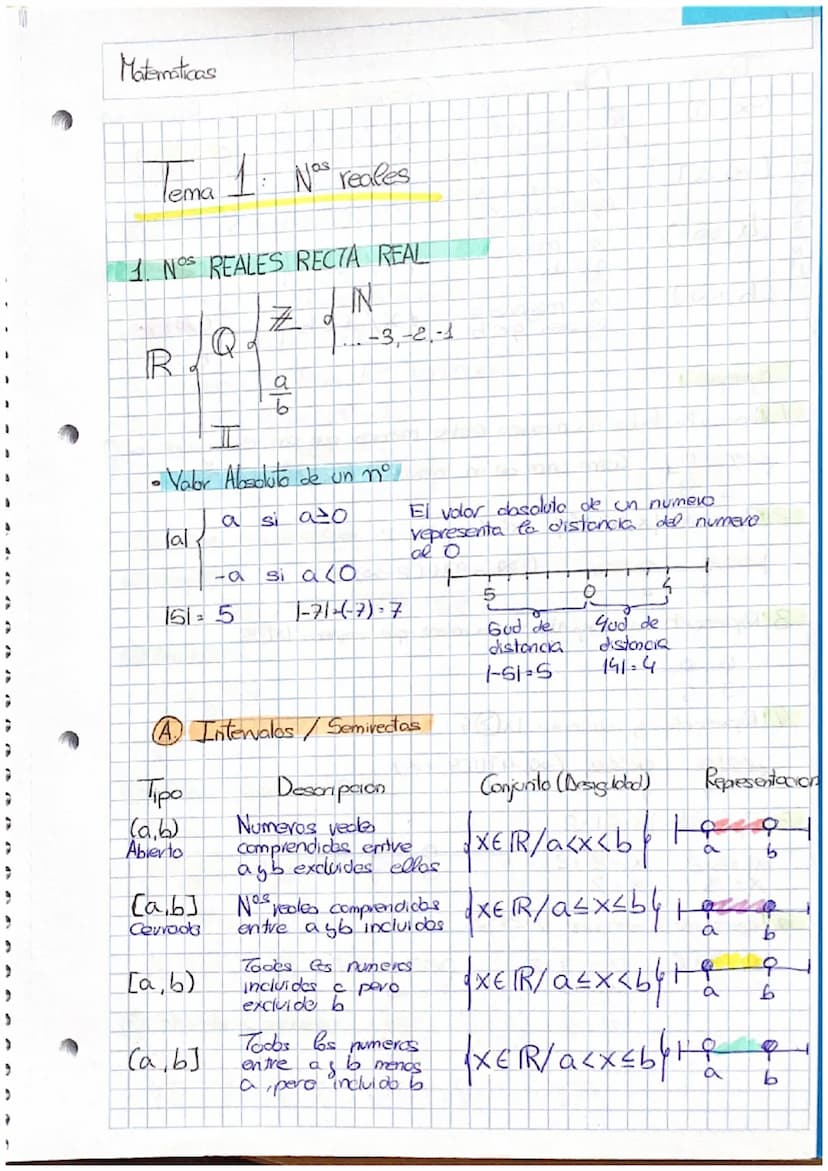 Matemáticas
Tema 1: Nos reales
1. Nos REALES RECTA REAL
R { Q { Z { N
...-3,-2,-1
a/b
II
• Valor Absoluto de un nº
|a| { a si a≥0
-a si a<0
El valor absoluto de un numero
representa la distancia del numero
al 0
|5| = 5 |-7|=(-7)=7
5 0 4
5ud de distancia
|-5|=5
4ud de distancia
|4|=4
A. Intervalos / Semirectas
Tipo Descripcion Conjunto (Desigldad) Representacion
(a,b) Abierto
Numeros reales
comprendidos entre
a y b excluidos ellos
{x∈R/a<x<b}
a b
[a,b] Cerrado
Nos reales comprendidos
entre a y b incluidos
{x∈R/a≤x≤b}
a b
[a,b)
Todos los numeros
incluidos a pero
excluido b
{x∈R/a≤x<b}
a b
(a,b]
Todos los numeros
entre a y b menos
a, pero incluido b
{x∈R/a<x≤b}
a b